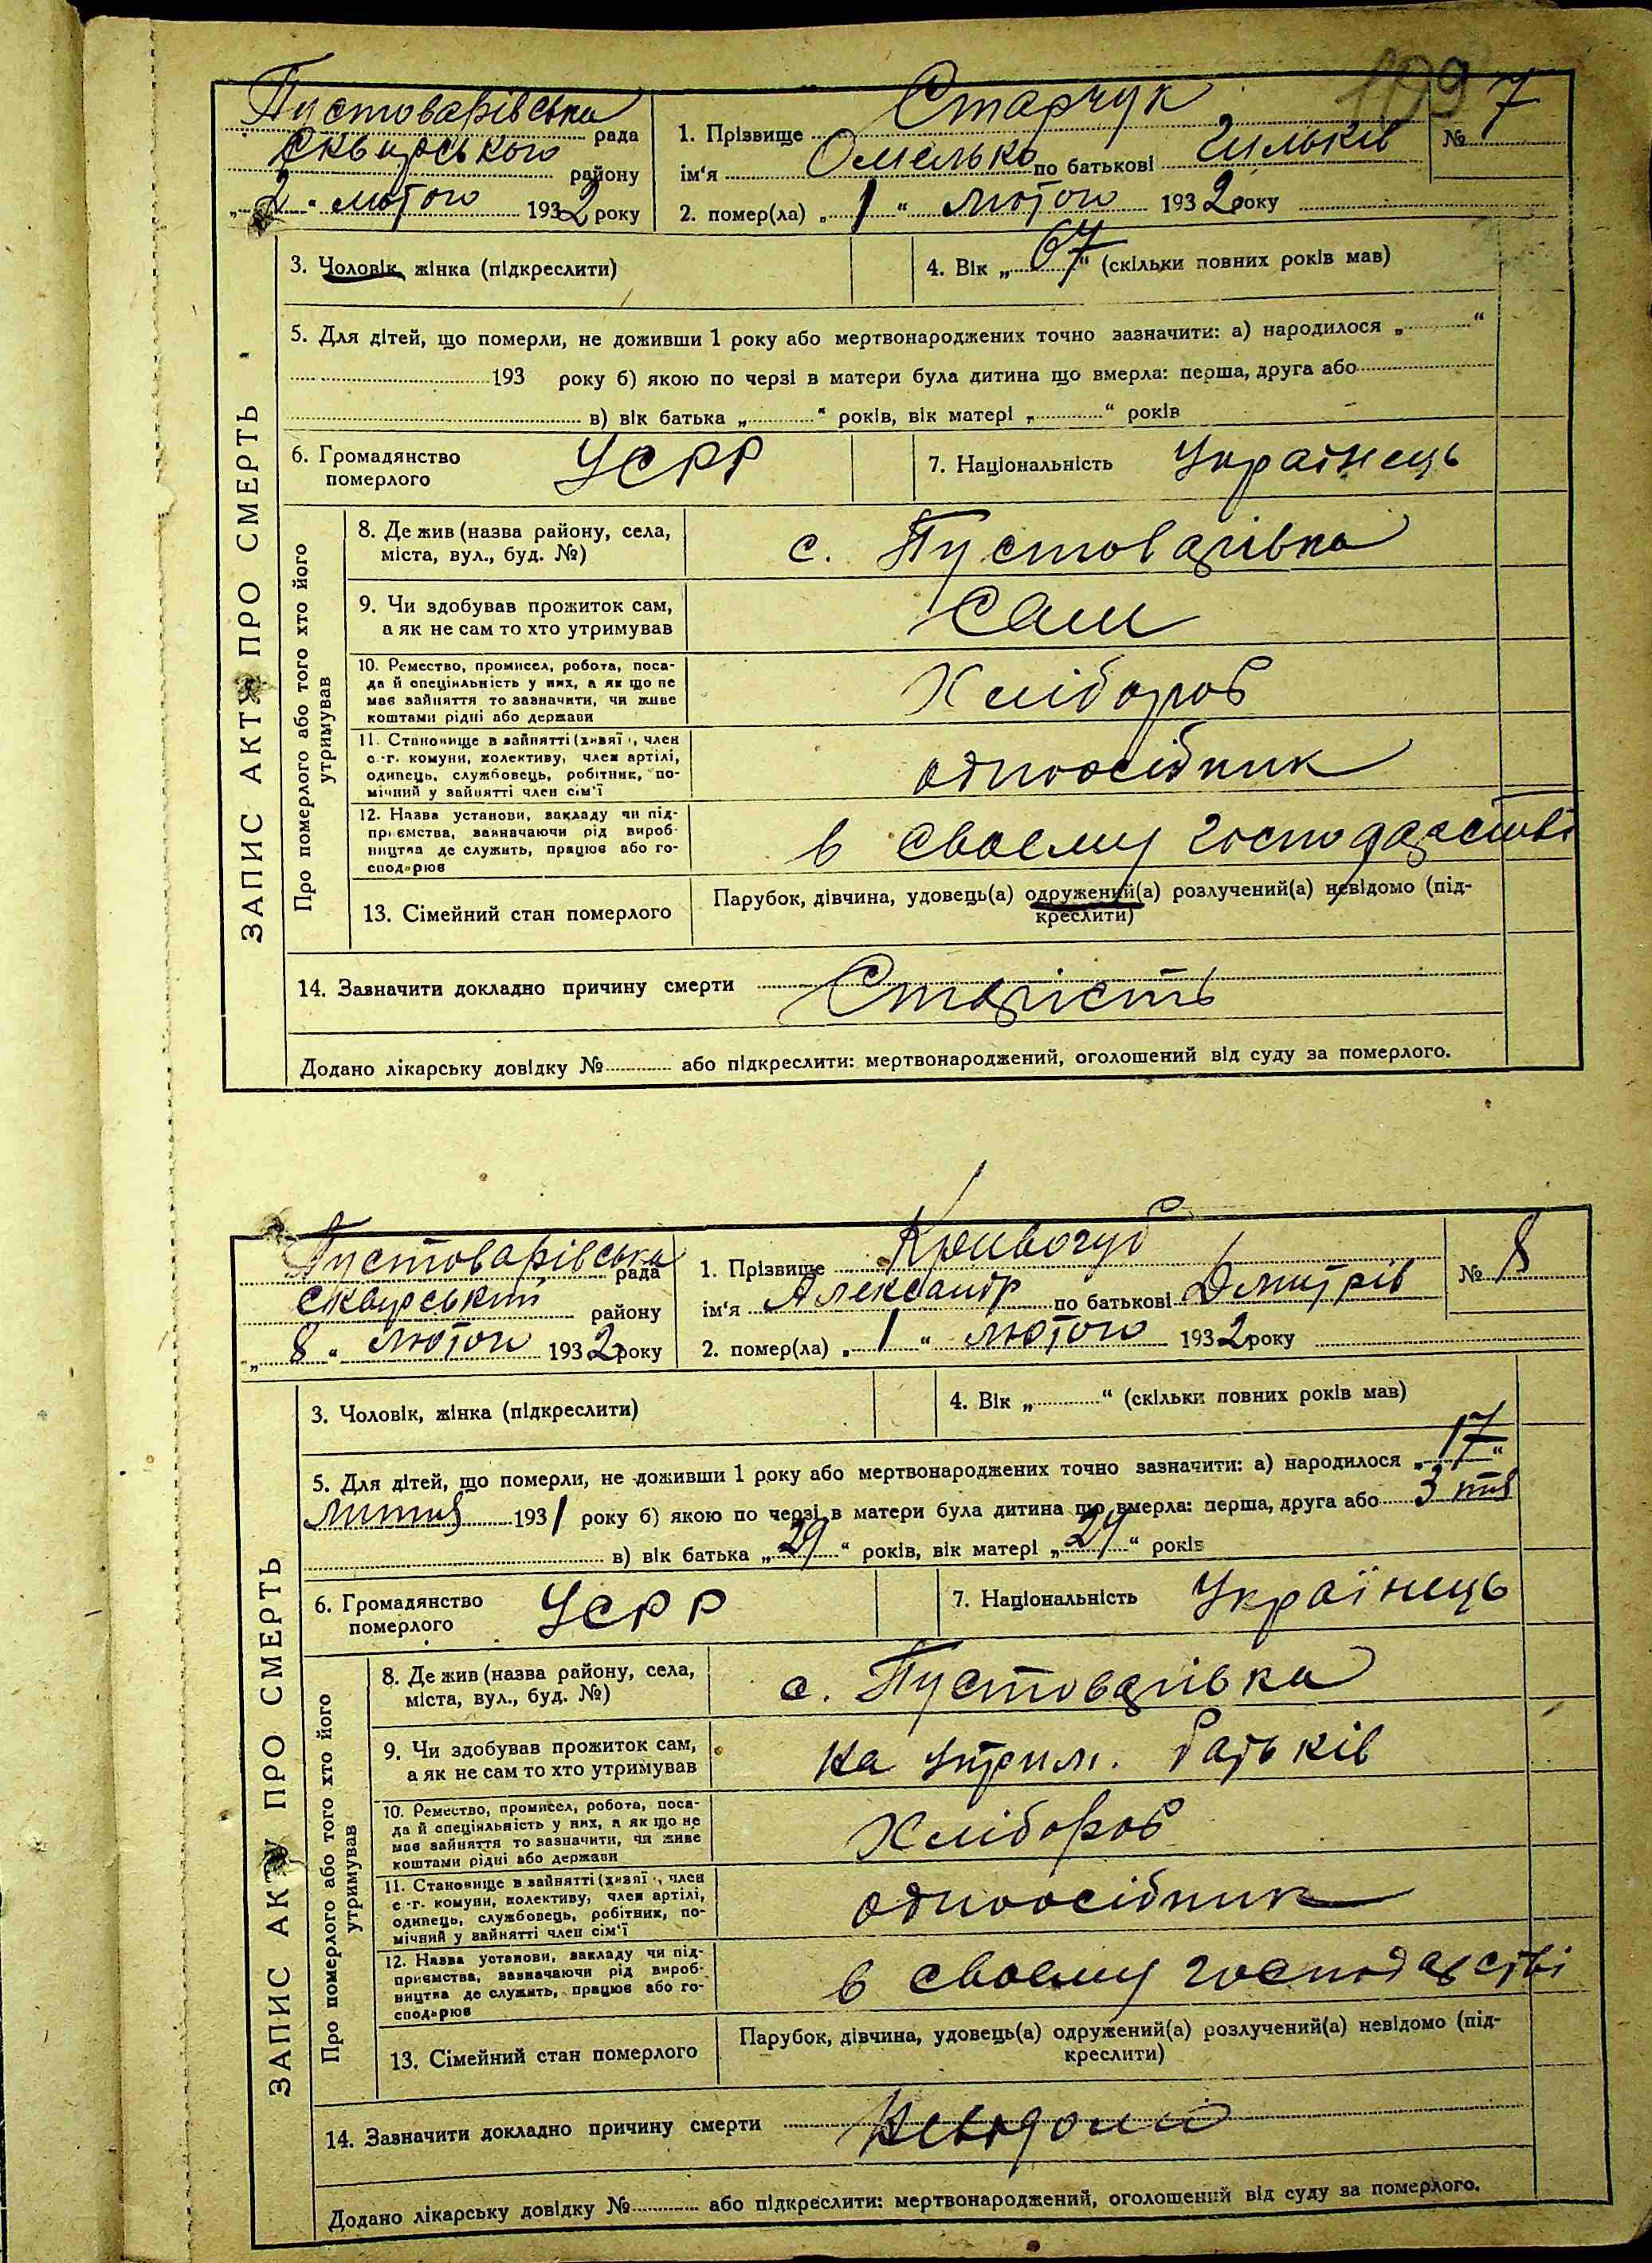 109
Пустоварівська рада
Сквирського району
„2“ лютого 1932 року
1. Прізвище Старчук
ім'я Омелько по батькові
№ 7
2. помер(ла) „1“ лютого 1932 року
ЗАПИС АКТУ ПРО СМЕРТЬ
3. Чоловік, жінка (підкреслити)
4. Вік „67“ (скільки повних років мав)
5. Для дітей, що померли, не доживши 1 року або мертвонароджених точно зазначити: а) народилося „ “
193 року б) якою по черзі в матери була дитина що вмерла: перша, друга або
в) вік батька „ “ років, вік матері „ “ років
6. Громадянство
померлого
УСРР
7. Національність Українець
Про померлого або того хто його
утримував
8. Де жив (назва району, села,
міста, вул., буд. №)
с. Пустоварівка
9. Чи здобував прожиток сам,
а як не сам то хто утримував
Сам
10. Ремество, промисел, робота, поса-
да й спеціяльність у них, а як що не
має зайняття то зазначити, чи живе
коштами рідні або держави
Хлібороб
11. Становище в зайнятті (хазяї , член
с.-г. комуни, колективу, член артілі,
одинець, службовець, робітник, по-
мічний у зайнятті член сім'ї
одноосібник
12. Назва установи, закладу чи під-
приємства, зазначаючи рід вироб-
ництва де служить, працює або го-
сподарює
в своєму господарстві
13. Сімейний стан померлого
Парубок, дівчина, удовець(а) одружений(а) розлучений(а) невідомо (під-
креслити)
14. Зазначити докладно причину смерти Старість
Додано лікарську довідку № або підкреслити: мертвонароджений, оголошений від суду за померлого.
Пустоварівська рада
Сквирський району
„8“ лютого 1932 року
1. Прізвище Кривочуб
ім'я Александр по батькові Дмитрів
№ 8
2. помер(ла) „1“ лютого 1932 року
ЗАПИС АКТУ ПРО СМЕРТЬ
3. Чоловік, жінка (підкреслити)
4. Вік „ “ (скільки повних років мав)
5. Для дітей, що померли, не доживши 1 року або мертвонароджених точно зазначити: а) народилося „17“
липня 1931 року б) якою по черзі в матери була дитина що вмерла: перша, друга або 3
в) вік батька „29“ років, вік матері „29“ років
6. Громадянство
померлого
УСРР
7. Національність Українець
Про померлого або того хто його
утримував
8. Де жив (назва району, села,
міста, вул., буд. №)
с. Пустоварівка
9. Чи здобував прожиток сам,
а як не сам то хто утримував
На утрим. батьків
10. Ремество, промисел, робота, поса-
да й спеціяльність у них, а як що не
має зайняття то зазначити, чи живе
коштами рідні або держави
Хлібороб
11. Становище в зайнятті (хазяї , член
с.-г. комуни, колективу, член артілі,
одинець, службовець, робітник, по-
мічний у зайнятті член сім'ї
одноосібник
12. Назва установи, закладу чи під-
приємства, зазначаючи рід вироб-
ництва де служить, працює або го-
сподарює
в своєму господарстві
13. Сімейний стан померлого
Парубок, дівчина, удовець(а) одружений(а) розлучений(а) невідомо (під-
креслити)
14. Зазначити докладно причину смерти
Додано лікарську довідку № або підкреслити: мертвонароджений, оголошений від суду за померлого.